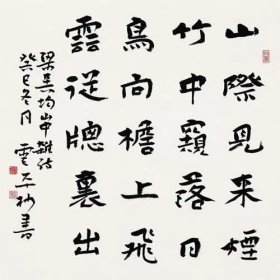 山際見来煙
竹中窺落日
鳥向檐上飛
雲從牕裏出
梁吳均山中雜詩
癸巳冬月